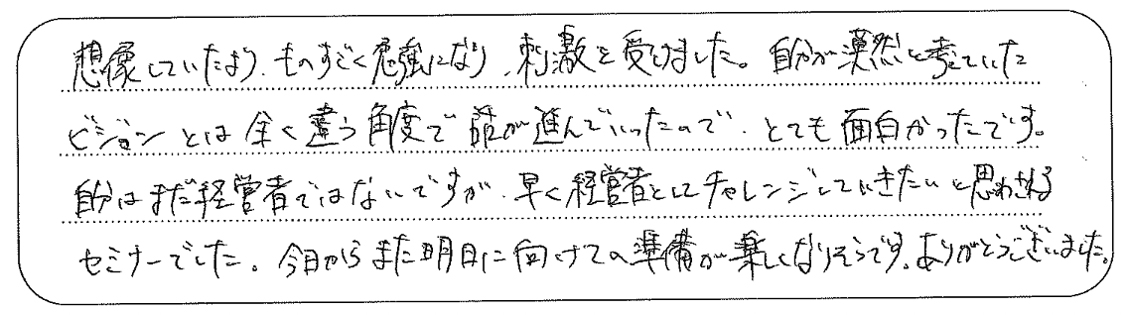 想像していたより、ものすごく勉強になり、刺激を受けました。自分が漠然と考えていた
ビジョンとは全く違う角度で話が進んでいったので、とても面白かったです。
自分はまだ経営者ではないですが、早く経営者としてチャレンジしていきたいと思わされる
セミナーでした。今日からまた明日に向けての準備が楽しくなりそうです。ありがとうございました。